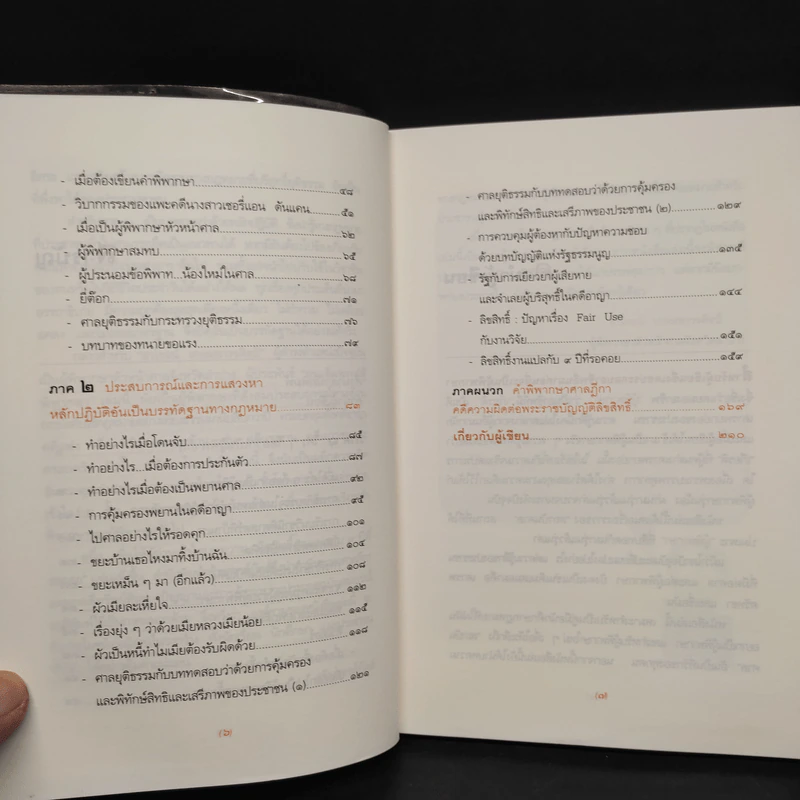 - เมื่อต้องเขียนคำพิพากษา ๔๘
- วิบากกรรมของแพะคดีนางสาวเชอรี่แอน ดันแคน ๕๑
- เมื่อเป็นผู้พิพากษาหัวหน้าศาล ๖๒
- ผู้พิพากษาสมทบ ๖๕
- ผู้ประนอมข้อพิพาท...น้องใหม่ในศาล ๖๘
- ยี่ต๊อก ๗๑
- ศาลยุติธรรมกับกระทรวงยุติธรรม ๗๖
- บทบาทของทนายขอแรง ๗๙
ภาค ๒ ประสบการณ์และการแสวงหา
หลักปฏิบัติอันเป็นบรรทัดฐานทางกฎหมาย ๘๑
- ทำอย่างไรเมื่อโดนจับ ๘๕
- ทำอย่างไร...เมื่อต้องการประกันตัว ๘๗
- ทำอย่างไรเมื่อต้องเป็นพยานศาล ๙๒
- การคุ้มครองพยานในคดีอาญา ๙๕
- ไปศาลอย่างไรให้รอดคุก ๑๐๑
- ขยะบ้านเธอไหงมาทิ้งบ้านฉัน ๑๐๔
- ขยะเหม็น ๆ มา (อีกแล้ว) ๑๐๘
- ผัวเมียละเหี่ยใจ ๑๑๒
- เรื่องยุ่ง ๆ ว่าด้วยเมียหลวงเมียน้อย ๑๑๕
- ผัวเป็นหนี้ทำไมเมียต้องรับผิดด้วย ๑๑๘
- ศาลยุติธรรมกับบททดสอบว่าด้วยการคุ้มครอง
และพิทักษ์สิทธิและเสรีภาพของประชาชน (๑) ๑๒๑
(๖)
- ศาลยุติธรรมกับบททดสอบว่าด้วยการคุ้มครอง
และพิทักษ์สิทธิและเสรีภาพของประชาชน (๒) ๑๒๙
- การควบคุมผู้ต้องหากับปัญหาความชอบ
ด้วยบทบัญญัติแห่งรัฐธรรมนูญ ๑๓๕
- รัฐกับการเยียวยาผู้เสียหาย
และจำเลยผู้บริสุทธิ์ในคดีอาญา ๑๔๔
- ลิขสิทธิ์ : ปัญหาเรื่อง Fair Use
กับงานวิจัย ๑๕๑
- ลิขสิทธิ์งานแปลกับ ๙ ปีที่รอคอย ๑๕๙
ภาคผนวก คำพิพากษาศาลฎีกา
คดีความผิดต่อพระราชบัญญัติลิขสิทธิ์ ๑๖๙
เกี่ยวกับผู้เขียน ๒๑๐
(๗)